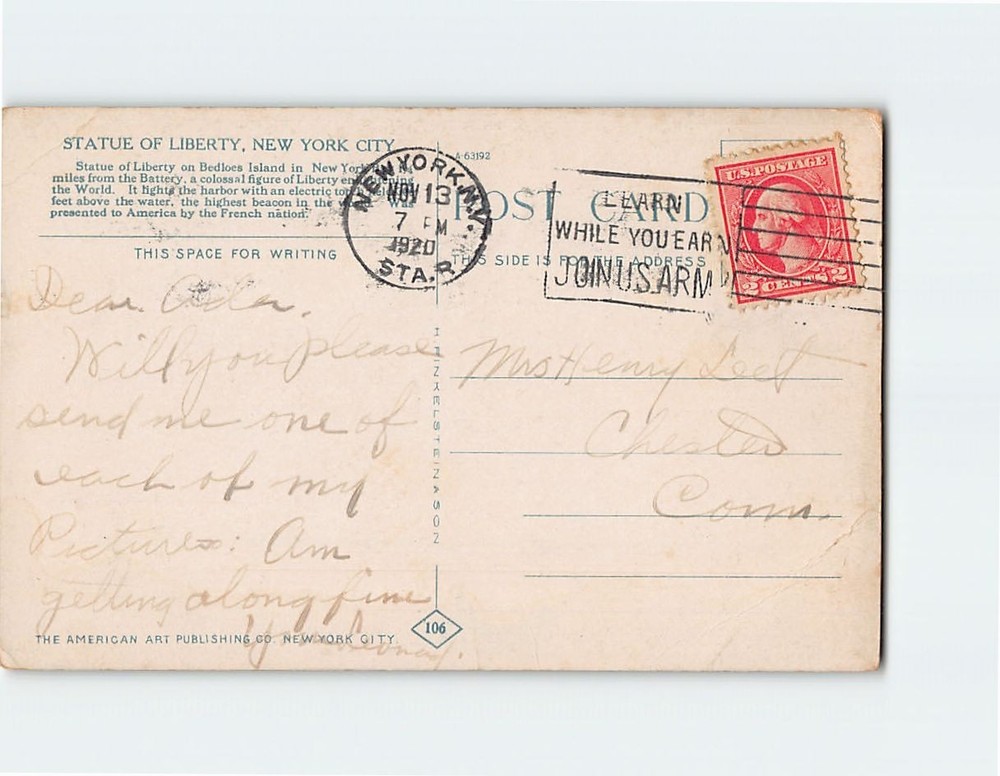 STATUE OF LIBERTY, NEW YORK CITY
Statue of Liberty on Bedloes Island in New York
miles from the Battery, a colossal figure of Liberty
the World. It lights the harbor with an electric
feet above the water, the highest beacon in the
presented to America by the French nation.
THIS SPACE FOR WRITING
A-63192
POST CARD
THIS SIDE IS FOR THE ADDRESS
NEW YORK, N.Y.
NOV 13
7 PM
1920
STA. R
LEARN
WHILE YOU EARN
JOIN U.S. ARM
U.S. POSTAGE
2 CENTS 2
Dear Ada.
Will you please
send me one of
each of my
Pictures: Am
getting along fine
Mrs Henry Leet
Chester
Conn.
H FINKELSTEIN & SON
THE AMERICAN ART PUBLISHING CO. NEW YORK CITY.
106